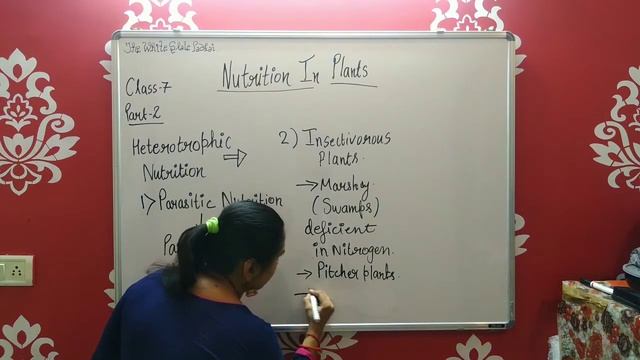 The White
Nutrition In Plants
Class-7
Part-2
Heterotrophic
Nutrition
1) Parasitic Nutrition
2) Insectivorous
Plants.
→ Marshy.
(Swamps)
deficient
in Nitrogen.
→ Pitcher plants.